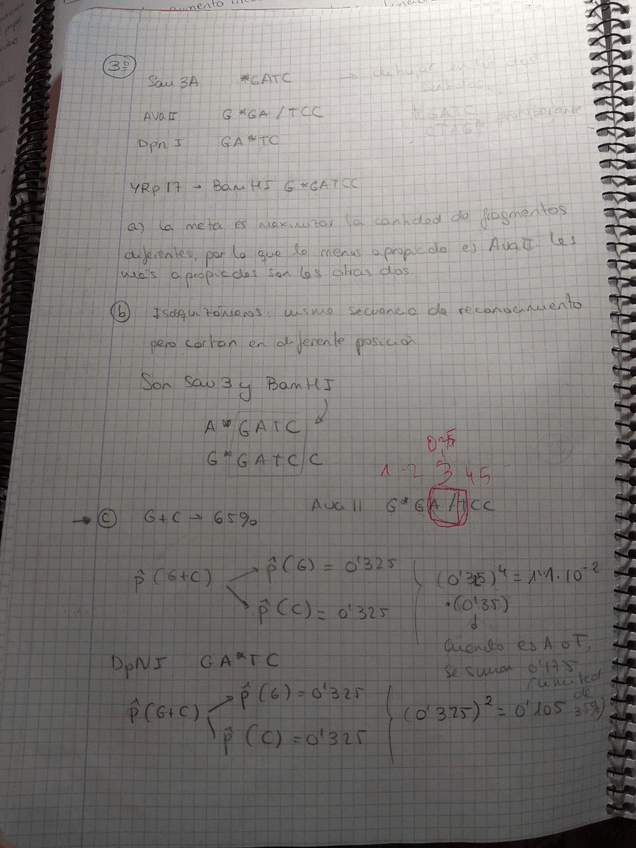 3º
Sau 3A *GATC
Ava II G*GA/TCC
Dpn I GA*TC
YRp 17 → BamHI G*GATCC
a) La meta es maximizar la cantidad de fragmentos
diferentes, por lo que la menos apropiada es Ava II. Les
más apropiadas son las otras dos.
b) Isoquizómeros: misma secuencia de reconocimiento
pero cortan en diferente posición
Son Sau 3 y BamHI
A*GATC
G*GATCC
1 2 3 4 5
→ c) G+C → 65% Ava II G*GA/TCC
p̂(G+C) p̂(G) = 0'325
p̂(C) = 0'325
(0'325)⁴ = 1'1·10⁻²
·(0'35)
Cuando es A o T,
se suman 0'175
(mitad de 35%)
DpNI GA*TC
p̂(G+C) p̂(G) = 0'325
p̂(C) = 0'325
(0'325)² = 0'105